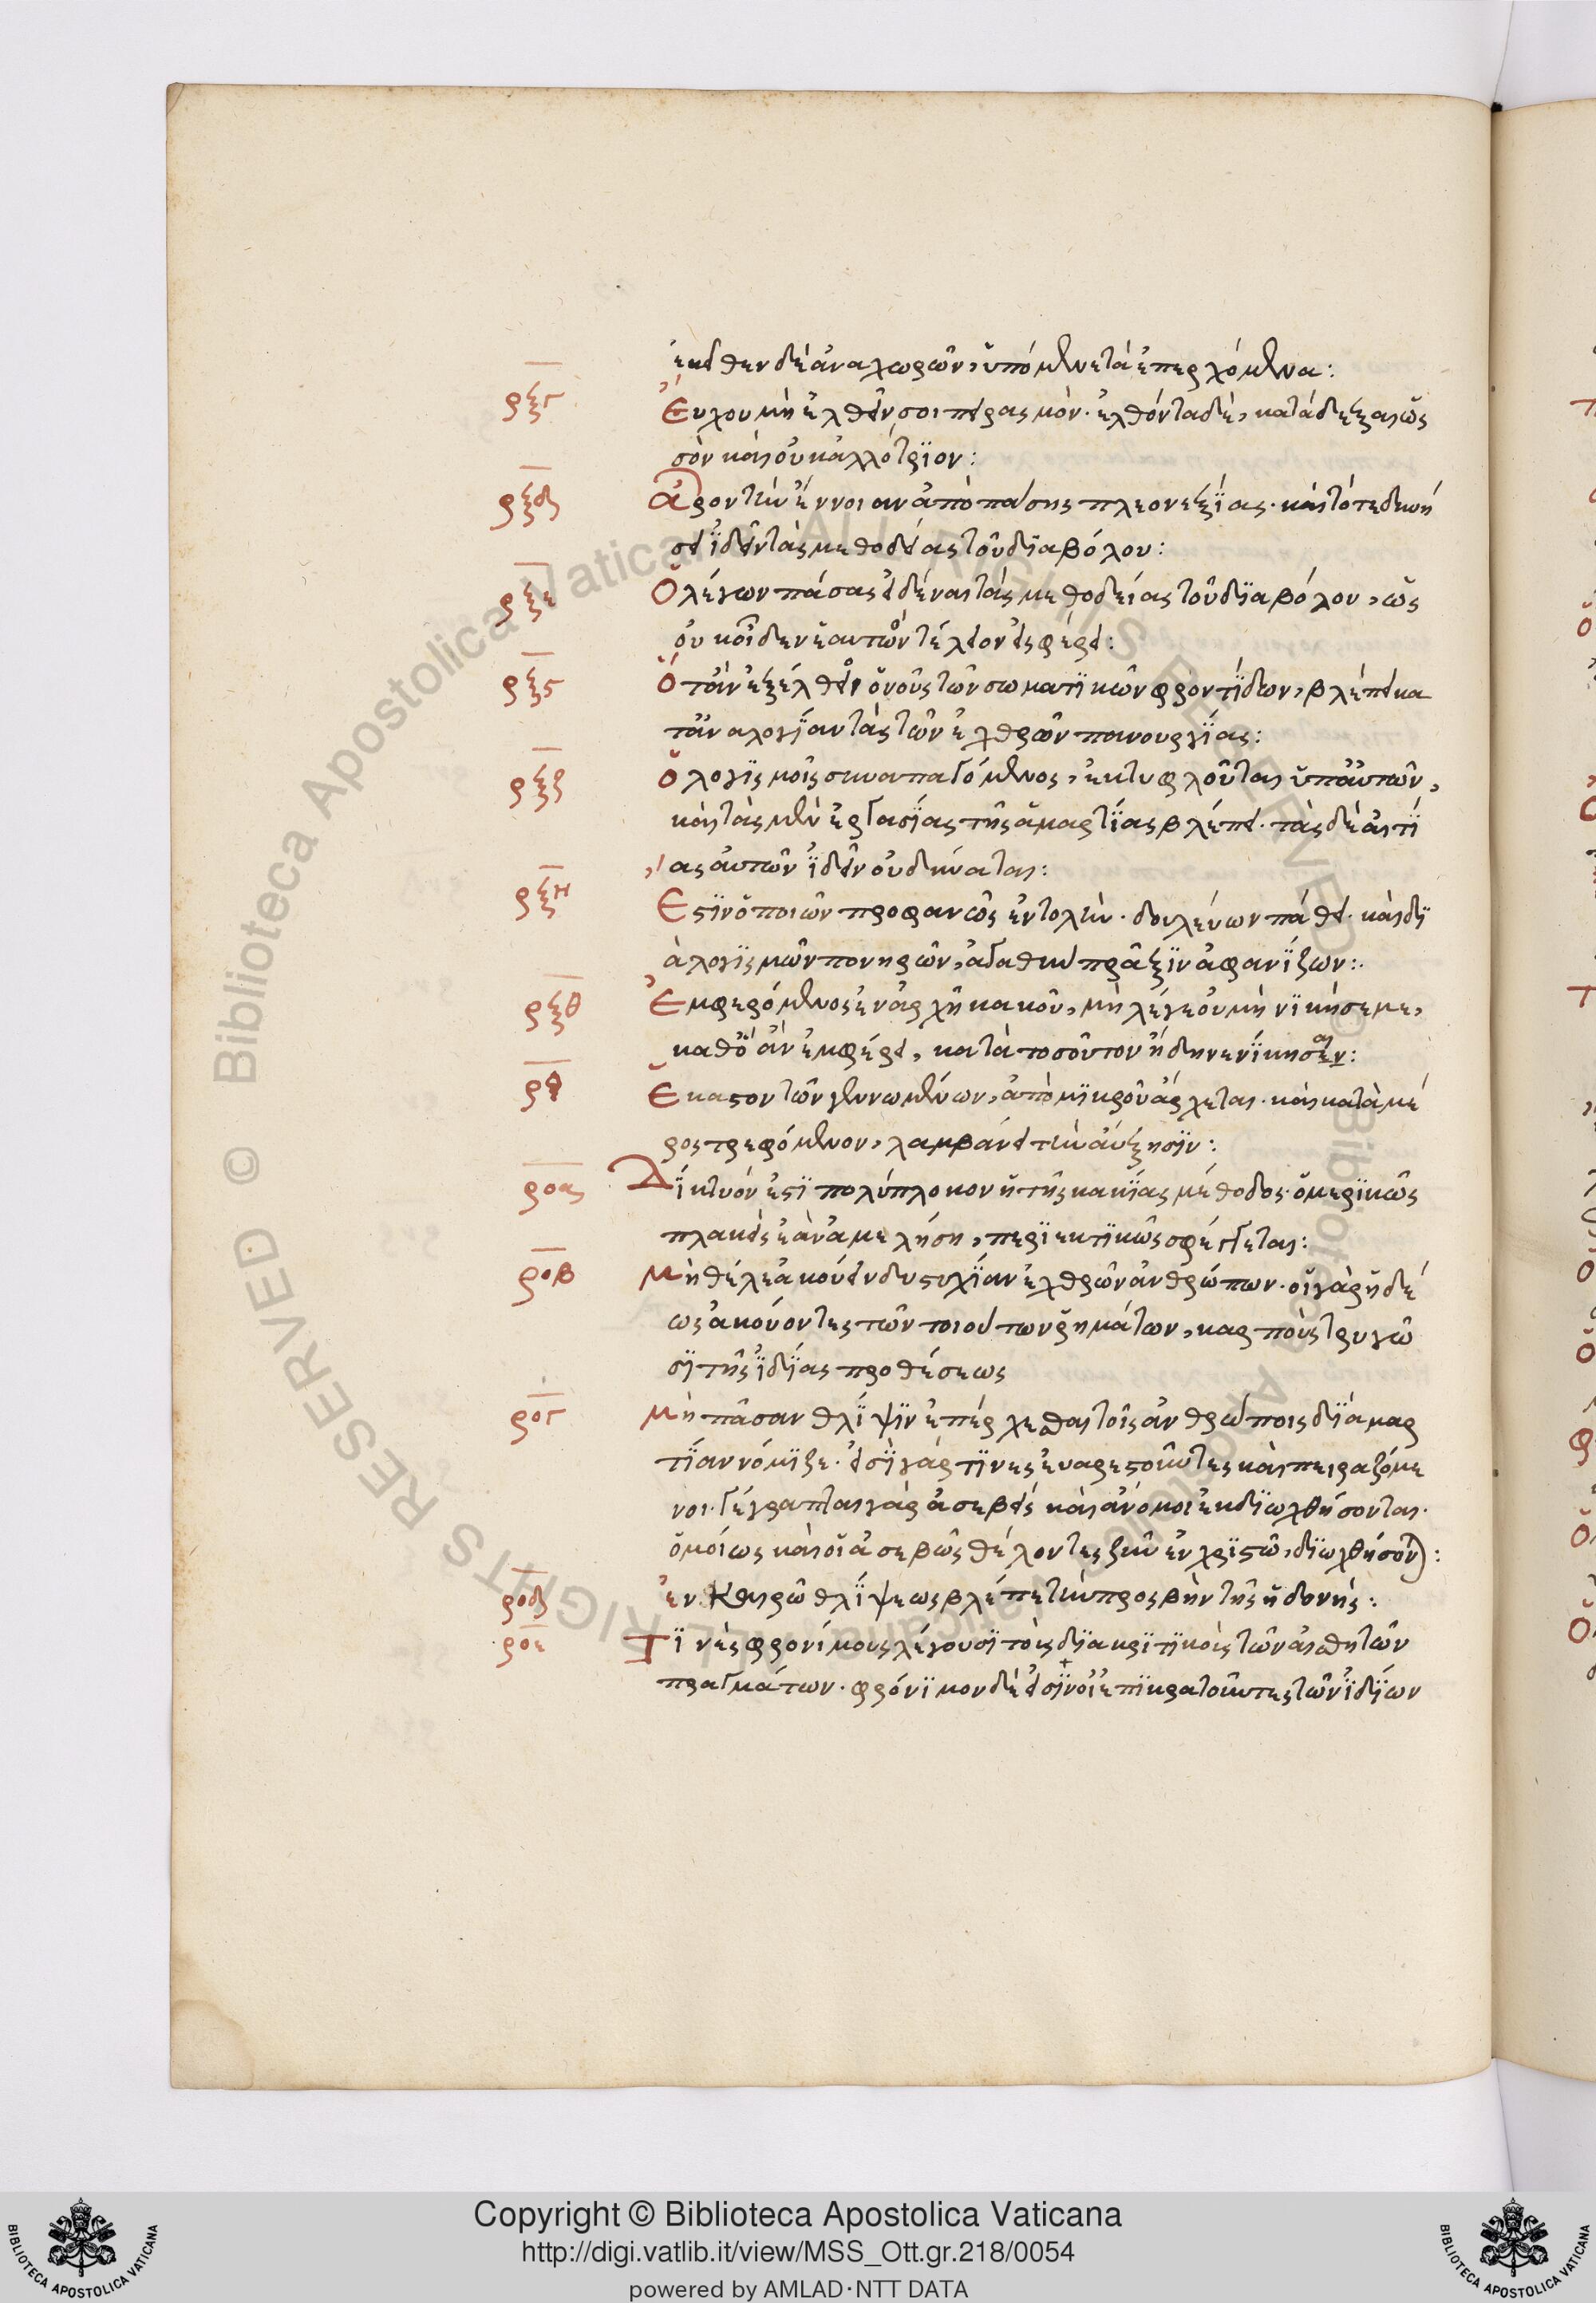 ἐκεῖθεν δὲ ἀναχωρῶν, ὑπόμενε τὰ ἐπερχόμενα:
ρξγ Εὔχου μὴ ἐλθεῖν σοι πειρασμόν· ἐλθόντα δὲ, κατάδεξαι ὡς
σὸν καὶ οὐκ ἀλλότριον:
ρξδ Ἆρον τὴν ἔννοιαν ἀπὸ πάσης πλεονεξίας· καὶ τότε δυνή
σει ἰδεῖν τὰς μεθοδείας τοῦ διαβόλου:
ρξε Ὁ λέγων πάσας εἰδέναι τὰς μεθοδείας τοῦ διαβόλου, ὡς
οὐκ οἶδεν ἑαυτὸν τέλειον εἰσφέρει:
ρξς Ὅταν ἐξέλθῃ ὁ νοῦς τῶν σωματικῶν φροντίδων, βλέπει κα
τ' ἀναλογίαν τὰς τῶν ἐχθρῶν πανουργίας:
ρξζ Ὁ λογισμοῖς συναπαγόμενος, ἐκτυφλοῦται ὑπ' αὐτῶν,
καὶ τὰς μὲν ἐργασίας τῆς ἁμαρτίας βλέπει· τὰς δὲ αἰτί
ας αὐτῶν ἰδεῖν οὐ δύναται:
ρξη Ἔστιν ὁ ποιῶν προφανῶς ἐντολὴν· δουλεύων πάθει· καὶ δι
ὰ λογισμῶν πονηρῶν, ἀγαθὴν πρᾶξιν ἀφανίζων:
ρξθ Ἐμφερόμενος ἐν ἀρχῇ κακοῦ, μὴ λέγε οὐ μὴ νικήσει με,
καθ' ὃ ἂν ἐμφέρει, κατὰ τοσοῦτον ἤδη νενίκησαι:
ρο Ἕκαστον τῶν γενομένων, ἀπὸ μικροῦ ἄρχεται· καὶ κατὰ μέ
ρος τρεφόμενον, λαμβάνει τὴν αὔξησιν:
ροα Δίκτυόν ἐστι πολύπλοκον ἡ τῆς κακίας μέθοδος· ὁ μερικῶς
πλακεὶς ἐὰν ἀμελήσῃ, περιεκτικῶς σφίγγεται:
ροβ Μὴ θέλε ἀκούειν δυστυχίαν ἐχθρῶν ἀνθρώπων· οἱ γὰρ ἡδέ
ως ἀκούοντες τῶν τοιούτων ῥημάτων, καρποὺς τρυγῶ
σι τῆς ἰδίας προθέσεως
ρογ Μὴ πᾶσαν θλίψιν ἐπέρχεσθαι τοῖς ἀνθρώποις δι' ἁμαρ
τίαν νόμιζε· εἰσὶ γάρ τινες εὐαρεστοῦντες καὶ πειραζόμε
νοι· γέγραπται γὰρ ἀσεβεῖς καὶ ἄνομοι ἐκδιωχθήσονται·
ὁμοίως καὶ οἱ εὐσεβῶς θέλοντες ζῆν ἐν χριστῷ, διωχθήσονται:
ροδ Ἐν καιρῷ θλίψεως βλέπε τὴν προσβολὴν τῆς ἡδονῆς:
ροε Τινὲς φρονίμους λέγουσι τοὺς διακριτικοὺς τῶν αἰσθητῶν
πραγμάτων· φρόνιμοι δὲ εἰσὶν οἱ ἐπικρατοῦντες τῶν ἰδίων
Copyright © Biblioteca Apostolica Vaticana
http://digi.vatlib.it/view/MSS_Ott.gr.218/0054
powered by AMLAD·NTT DATA